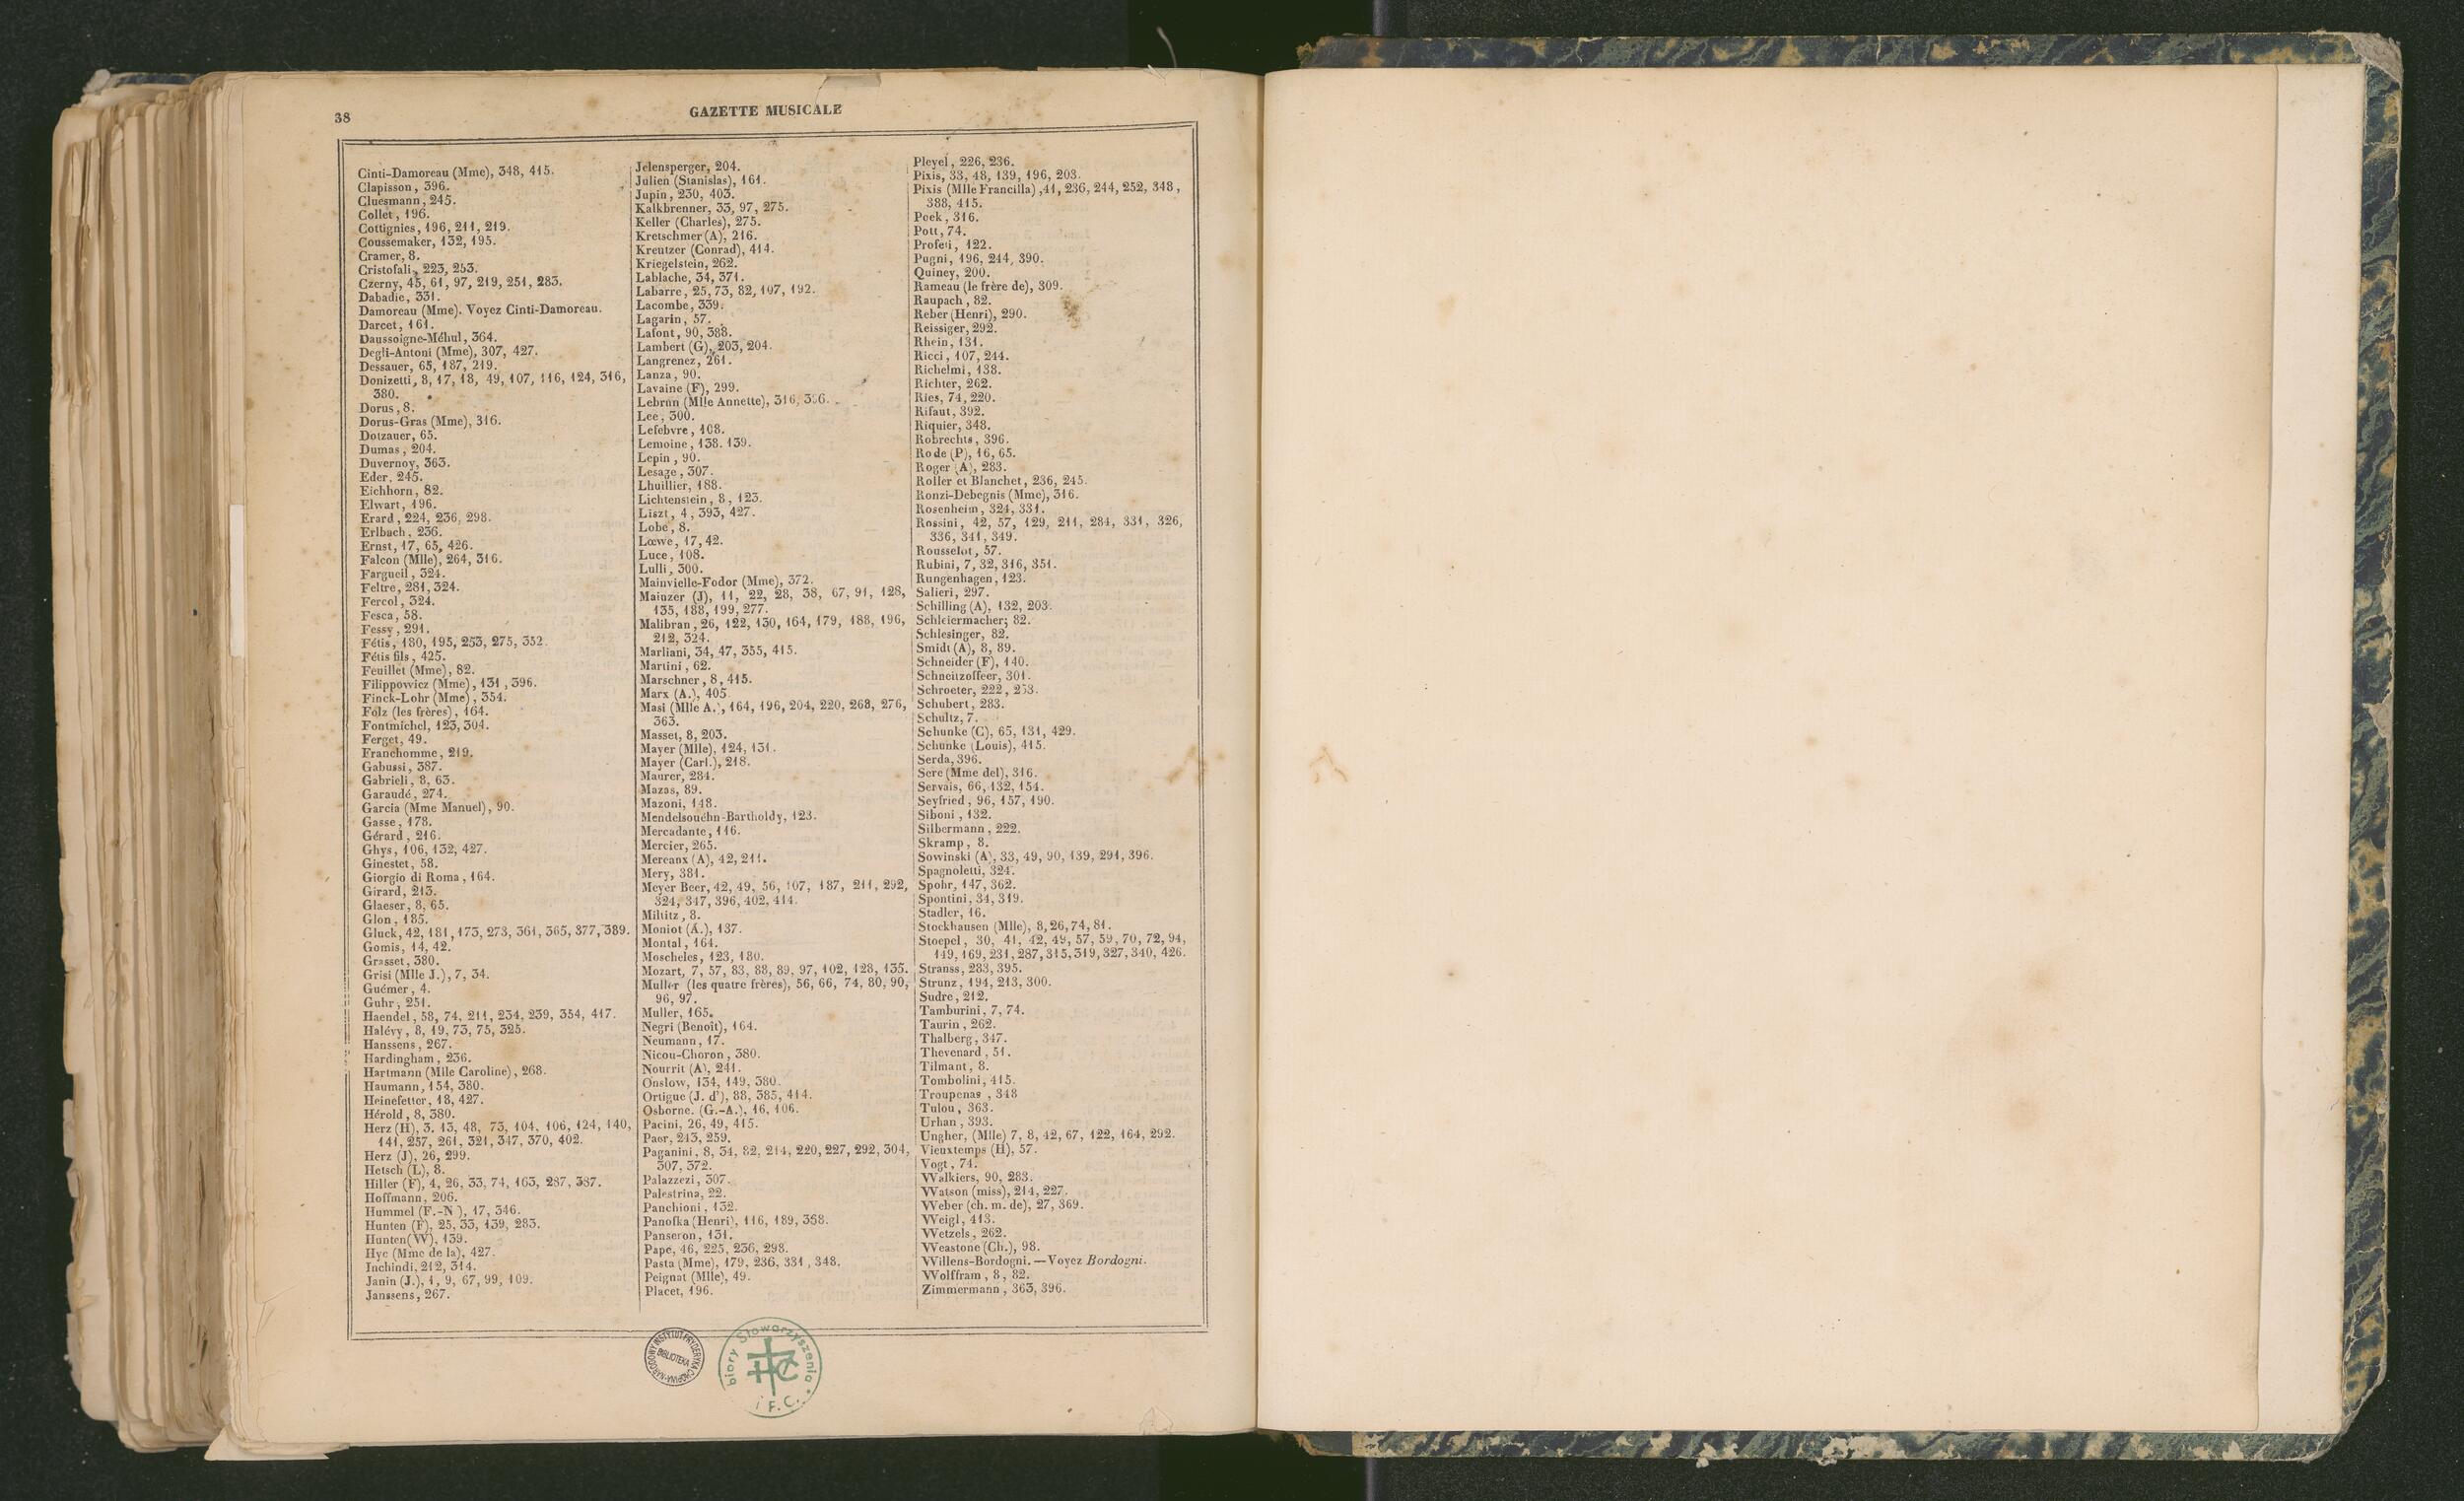 38
GAZETTE MUSICALE
Cinti-Damoreau (Mme), 348, 415.
Clapisson, 396.
Cluesmann, 245.
Collet, 196.
Cottignies, 196, 211, 219.
Coussemaker, 132, 195.
Cramer, 8.
Cristofali, 223, 253.
Czerny, 45, 61, 97, 219, 251, 283.
Dabadie, 331.
Damoreau (Mme). Voyez Cinti-Damoreau.
Darcet, 161.
Daussoigne-Méhul, 364.
Degli-Antoni (Mme), 307, 427.
Dessauer, 65, 187, 219.
Donizetti, 8, 17, 18, 49, 107, 116, 124, 316,
380.
Dorus, 8.
Dorus-Gras (Mme), 316.
Dotzauer, 65.
Dumas, 204.
Duvernoy, 363.
Eder, 245.
Eichhorn, 82.
Elwart, 196.
Erard, 224, 236, 298.
Erlbach, 236.
Ernst, 17, 65, 426.
Falcon (Mlle), 264, 316.
Fargueil, 324.
Feltre, 281, 324.
Fercol, 324.
Fesca, 58.
Fessy, 291.
Fétis, 180, 195, 253, 275, 352.
Fétis fils, 425.
Feuillet (Mme), 82.
Filippowicz (Mme), 131, 396.
Finck-Lohr (Mme), 354.
Folz (les frères), 164.
Fontmichel, 123, 304.
Ferget, 49.
Franchomme, 219.
Gabussi, 387.
Gabrieli, 8, 63.
Garaudé, 274.
Garcia (Mme Manuel), 90.
Gasse, 178.
Gérard, 216.
Ghys, 106, 132, 427.
Ginestet, 58.
Giorgio di Roma, 164.
Girard, 213.
Glaeser, 8, 65.
Glon, 185.
Gluck, 42, 181, 173, 273, 361, 365, 377, 389.
Gomis, 14, 42.
Grasset, 380.
Grisi (Mlle J.), 7, 34.
Guémer, 4.
Guhr, 251.
Haendel, 58, 74, 211, 234, 239, 354, 417.
Halévy, 8, 19, 73, 75, 325.
Hanssens, 267.
Hardingham, 236.
Hartmann (Mlle Caroline), 268.
Haumann, 154, 380.
Heinefetter, 18, 427.
Hérold, 8, 380.
Herz (H), 3. 13, 48, 73, 104, 106, 124, 140,
141, 257, 261, 321, 347, 370, 402.
Herz (J), 26, 299.
Hetsch (L), 8.
Hiller (F), 4, 26, 33, 74, 163, 287, 387.
Hoffmann, 206.
Hummel (F.-N), 17, 346.
Hunten (F), 25, 33, 139, 283.
Hunten (W), 139.
Hye (Mme de la), 427.
Inchindi, 212, 314.
Janin (J.), 1, 9, 67, 99, 109.
Janssens, 267.
Jelensperger, 204.
Julien (Stanislas), 161.
Jupin, 230, 403.
Kalkbrenner, 33, 97, 275.
Keller (Charles), 275.
Kretschmer (A), 216.
Kreutzer (Conrad), 414.
Kriegelstein, 262.
Lablache, 34, 371.
Labarre, 25, 73, 82, 107, 192.
Lacombe, 339.
Lagarin, 57.
Lafont, 90, 388.
Lambert (G), 203, 204.
Langrenez, 261.
Lanza, 90.
Lavaine (F), 299.
Lebrun (Mlle Annette), 316,
Lee, 300.
Lefebvre, 108.
Lemoine, 138. 139.
Lepin, 90.
Lesage, 307.
Lhuillier, 188.
Lichtenstein, 8, 123.
Liszt, 4, 393, 427.
Lobe, 8.
Lœwe, 17, 42.
Luce, 108.
Lulli, 300.
Mainvielle-Fodor (Mme), 372.
Mainzer (J), 11, 22, 28, 38, 67, 91, 128,
135, 188, 199, 277.
Malibran, 26, 122, 130, 164, 179, 188, 196,
212, 324.
Marliani, 34, 47, 355, 415.
Martini, 62.
Marschner, 8, 415.
Marx (A.), 405
Masi (Mlle A.), 164, 196, 204, 220, 268, 276,
363.
Masset, 8, 203.
Mayer (Mlle), 124, 131.
Mayer (Carl.), 218.
Maurer, 284.
Mazas, 89.
Mazoni, 148.
Mendelsouéhn-Bartholdy, 123.
Mercadante, 116.
Mercier, 265.
Mereanx (A), 42, 211.
Mery, 381.
Meyer Beer, 42, 49, 56, 107, 187, 211, 292,
324, 347, 396, 402, 414.
Miltitz, 8.
Moniot (A.), 137.
Montal, 164.
Moscheles, 123, 180.
Mozart, 7, 57, 83, 88, 89, 97, 102, 128, 135.
Muller (les quatre frères), 56, 66, 74, 80, 90,
96, 97.
Muller, 165.
Negri (Benoît), 164.
Neumann, 17.
Nicou-Choron, 380.
Nourrit (A), 241.
Onslow, 134, 149, 380.
Ortigue (J. d'), 88, 385, 414.
Osborne. (G.-A.), 16, 106.
Pacini, 26, 49, 415.
Paer, 243, 259.
Paganini, 8, 34, 82, 214, 220, 227, 292, 304,
307, 372.
Palazzezi, 307.
Palestrina, 22.
Panchioni, 132.
Panofka (Henri), 116, 189, 358.
Panseron, 131.
Pape, 46, 225, 236, 298.
Pasta (Mme), 179, 236, 331, 348.
Peignat (Mlle), 49.
Placet, 196.
Pleyel, 226, 236.
Pixis, 33, 48, 139, 196, 203.
Pixis (Mlle Francilla), 41, 236, 244, 252, 348,
388, 415.
Poek, 316.
Pott, 74.
Profeti, 122.
Pugni, 196, 244, 390.
Quiney, 200.
Rameau (le frère de), 309.
Raupach, 82.
Reber (Henri), 290.
Reissiger, 292.
Rhein, 131.
Ricci, 107, 244.
Richelmi, 138.
Richter, 262.
Ries, 74, 220.
Rifaut, 392.
Riquier, 348.
Robrechts, 396.
Rode (P), 16, 65.
Roger (A), 283.
Roller et Blanchet, 236, 245.
Ronzi-Debegnis (Mme), 316.
Rosenheim, 324, 331.
Rossini, 42, 57, 129, 211, 284, 331, 326,
336, 341, 349.
Rousselot, 57.
Rubini, 7, 32, 316, 351.
Rungenhagen, 123.
Salieri, 297.
Schilling (A), 132, 203.
Schleiermacher; 82.
Schlesinger, 82.
Smidt (A), 8, 89.
Schneider (F), 140.
Schneitzoffeer, 301.
Schroeter, 222, 253.
Schubert, 283.
Schultz, 7.
Schunke (C), 65, 131, 429.
Schunke (Louis), 415.
Serda, 396.
Sere (Mme del), 316.
Servais, 66, 132, 154.
Seyfried, 96, 157, 190.
Siboni, 132.
Silbermann, 222.
Skramp, 8.
Sowinski (A), 33, 49, 90, 139, 291, 396.
Spagnoletti, 324.
Spohr, 147, 362.
Spontini, 34, 319.
Stadler, 16.
Stockhausen (Mlle), 8, 26, 74, 81.
Stoepel, 30, 41, 42, 49, 57, 59, 70, 72, 94,
149, 169, 231, 287, 315, 319, 327, 340, 426.
Stranss, 283, 395.
Strunz, 194, 213, 300.
Sudre, 212.
Tamburini, 7, 74.
Taurin, 262.
Thalberg, 347.
Thevenard, 51.
Tilmant, 8.
Tombolini, 415.
Troupenas, 348
Tulou, 363.
Urhan, 393.
Ungher, (Mlle) 7, 8, 42, 67, 122, 164, 292.
Vieuxtemps (H), 57.
Vogt, 74.
Walkiers, 90, 283.
Watson (miss), 214, 227.
Weber (ch. m. de), 27, 369.
Weigl, 413.
Wetzels, 262.
Weastone (Ch.), 98.
Willens-Bordogni. — Voyez Bordogni.
Wolffram, 8, 82.
Zimmermann, 363, 396.
NARODOWY INSTYTUT FRYDERYKA CHOPINA
BIBLIOTEKA
biory Stowarzyszenia
i F. C.